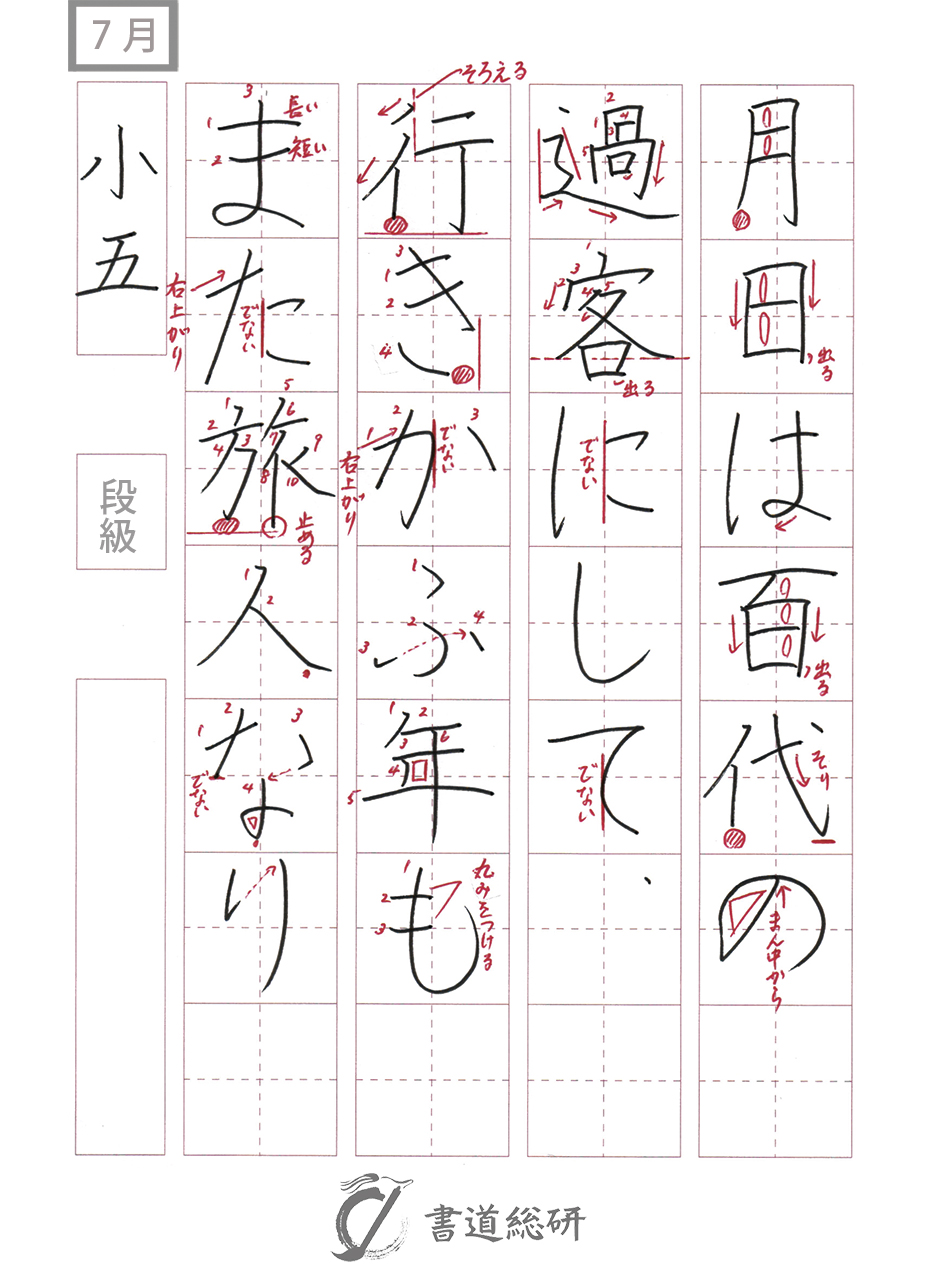 7月
月日は百代の
過客にして、
行きかふ年も
また旅人なり
小五
段級
出る
出る
そり
まん中から
出る
でない
でない
そろえる
でない
右上がり
丸みをつける
長い
短い
右上がり
でない
止める
でない
書道総研